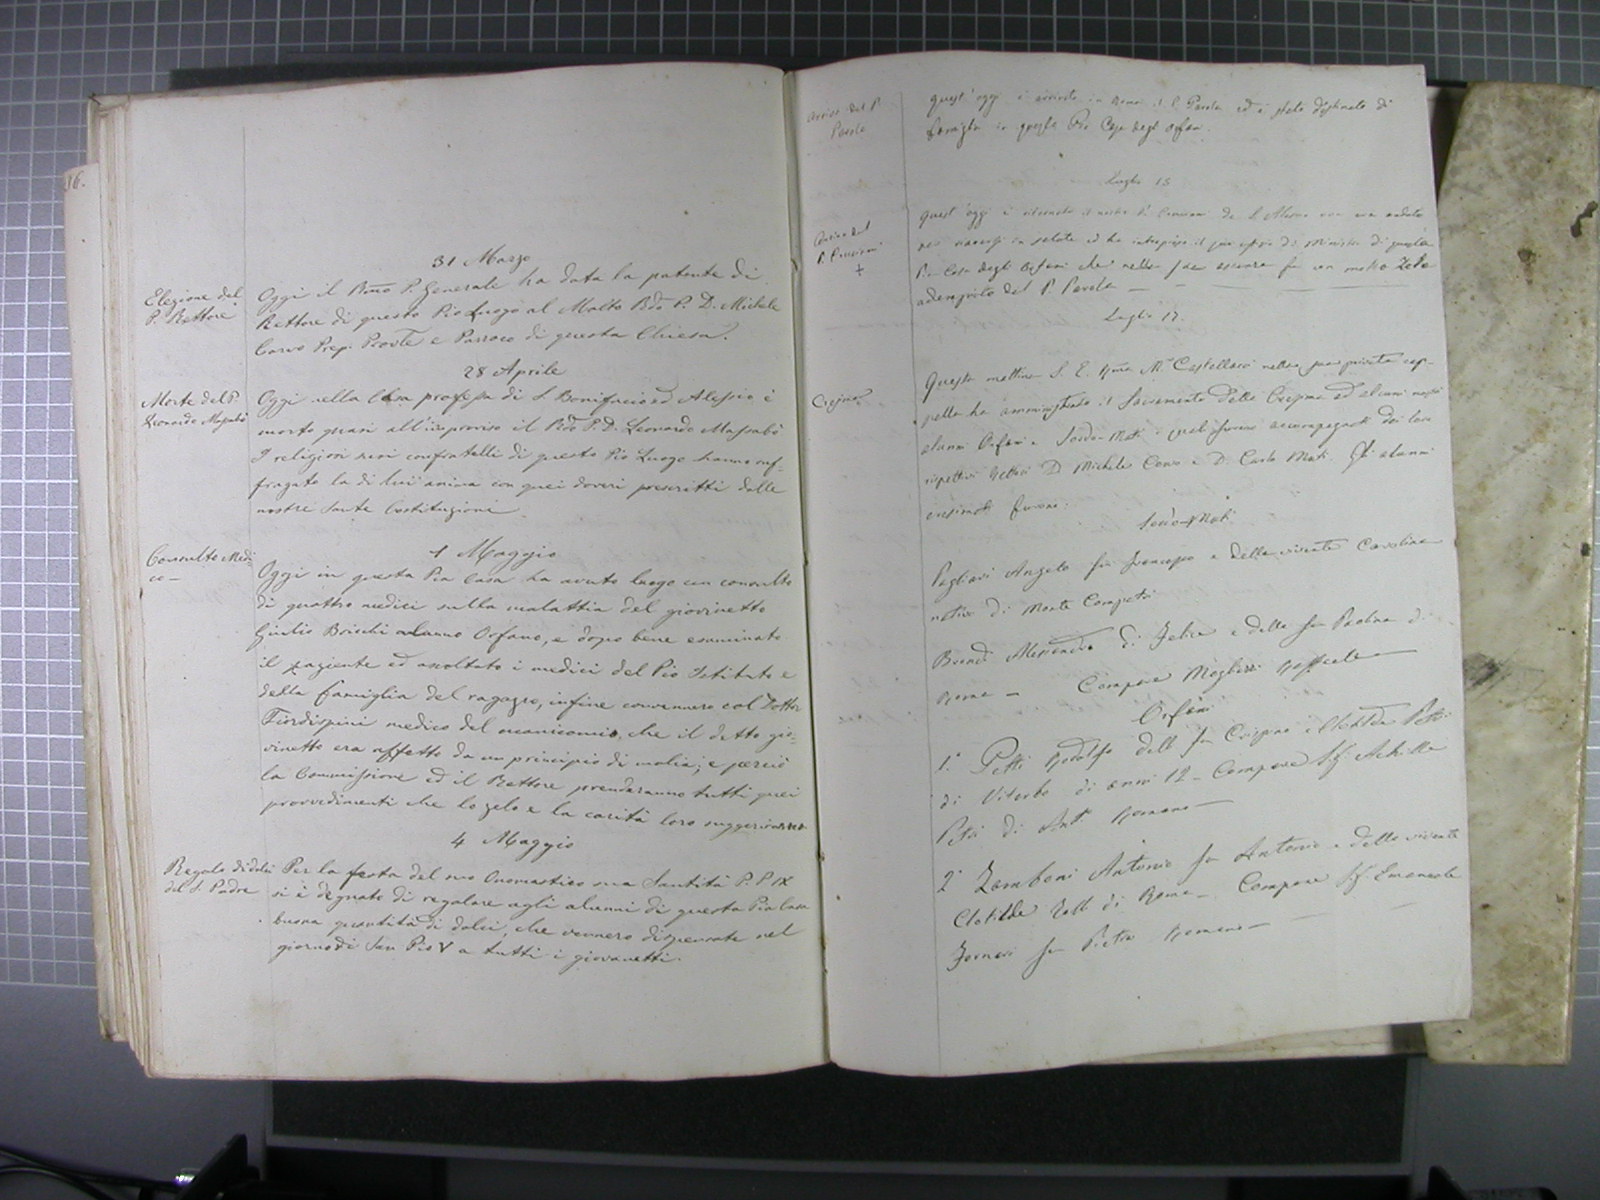 16.
31 Marzo
Elezione del
P. Rettore
Oggi il Rmo P. Generale ha data la patente di
Rettore di questo Pio Luogo al Molto Rdo P. D. Michele
Corvo Prep. Provle e Parroco di questa Chiesa.
28 Aprile
Morte del P.
Leonardo Massabò
Oggi nella Casa professa di S. Bonifacio ed Alessio è
morto quasi all'improvviso il Rdo P. D. Leonardo Massabò
I religiosi suoi confratelli di questo Pio Luogo hanno suf-
fragato la di lui anima con quei doveri prescritti dalle
nostre Sante Costituzioni
1 Maggio
Consulto Medi-
co
Oggi in questa Pia Casa ha avuto luogo un consulto
di quattro medici sulla malattia del giovinetto
Giulio Brischi alunno Orfano, e dopo bene esaminato
il paziente ed ascoltato i medici del Pio Istituto e
della famiglia del ragazzo, infine convennero col Dottor
Fiordispini medico del manicomio, che il detto gio-
vinetto era affetto da un principio di malia; e perciò
la Commissione ed il Rettore prenderanno tutti quei
provvedimenti che lo zelo e la carità loro suggeriranno
4 Maggio
Regalo di dolci
del S. Padre
Per la festa del suo Onomastico sua Santità P. P. IX
si è degnato di regalare agli alunni di questa Pia Casa
buona quantità di dolci, che vennero dispensate nel
giorno di San Pio V a tutti i giovanetti.
Arrivo del P.
Parola
Quest'oggi è arrivato in Roma il P. Parola ed è stato destinato di
famiglia in questa Pia Casa degli Orfani.
Luglio 15
Arrivo del
P. Cuccioni
Quest'oggi è ritornato il nostro P. Cuccioni da S. Alessio
in salute ed ha intrapreso il suo officio di Ministro di questa
Pia Casa degli Orfani che nella sua assenza fu con molto zelo
adempito dal P. Parola
Luglio 17.
Cresima
Questa mattina S. E. Rma Mr Castellacci nella sua privata cap-
pella ha amministrato il Sacramento della Cresima ad alcuni nostri
alunni Orfani e Sordo-Muti i quali furono accompagnati dai loro
rispettivi Rettori D. Michele Corvo e D. Carlo Muti. Gli alunni
cresimati furono:
Sordo-Muti
Pagliari Angelo fu Francesco e della vivente Carolina
nativo di Monte Compatri
Biondi Alessandro di Felice e della fu Paolina di
Roma — Compare Raffaele
Orfani
1° Petti Rodolfo del fu Crispino e Clotilde Petti
di Viterbo di anni 12 — Compare Sig. Achille
Petti di Ant. Romano
2° Zamboni Antonio fu Antonio e della vivente
Clotilde di Roma — Compare Sig. Emanuele
Fornari fu Pietro Romano